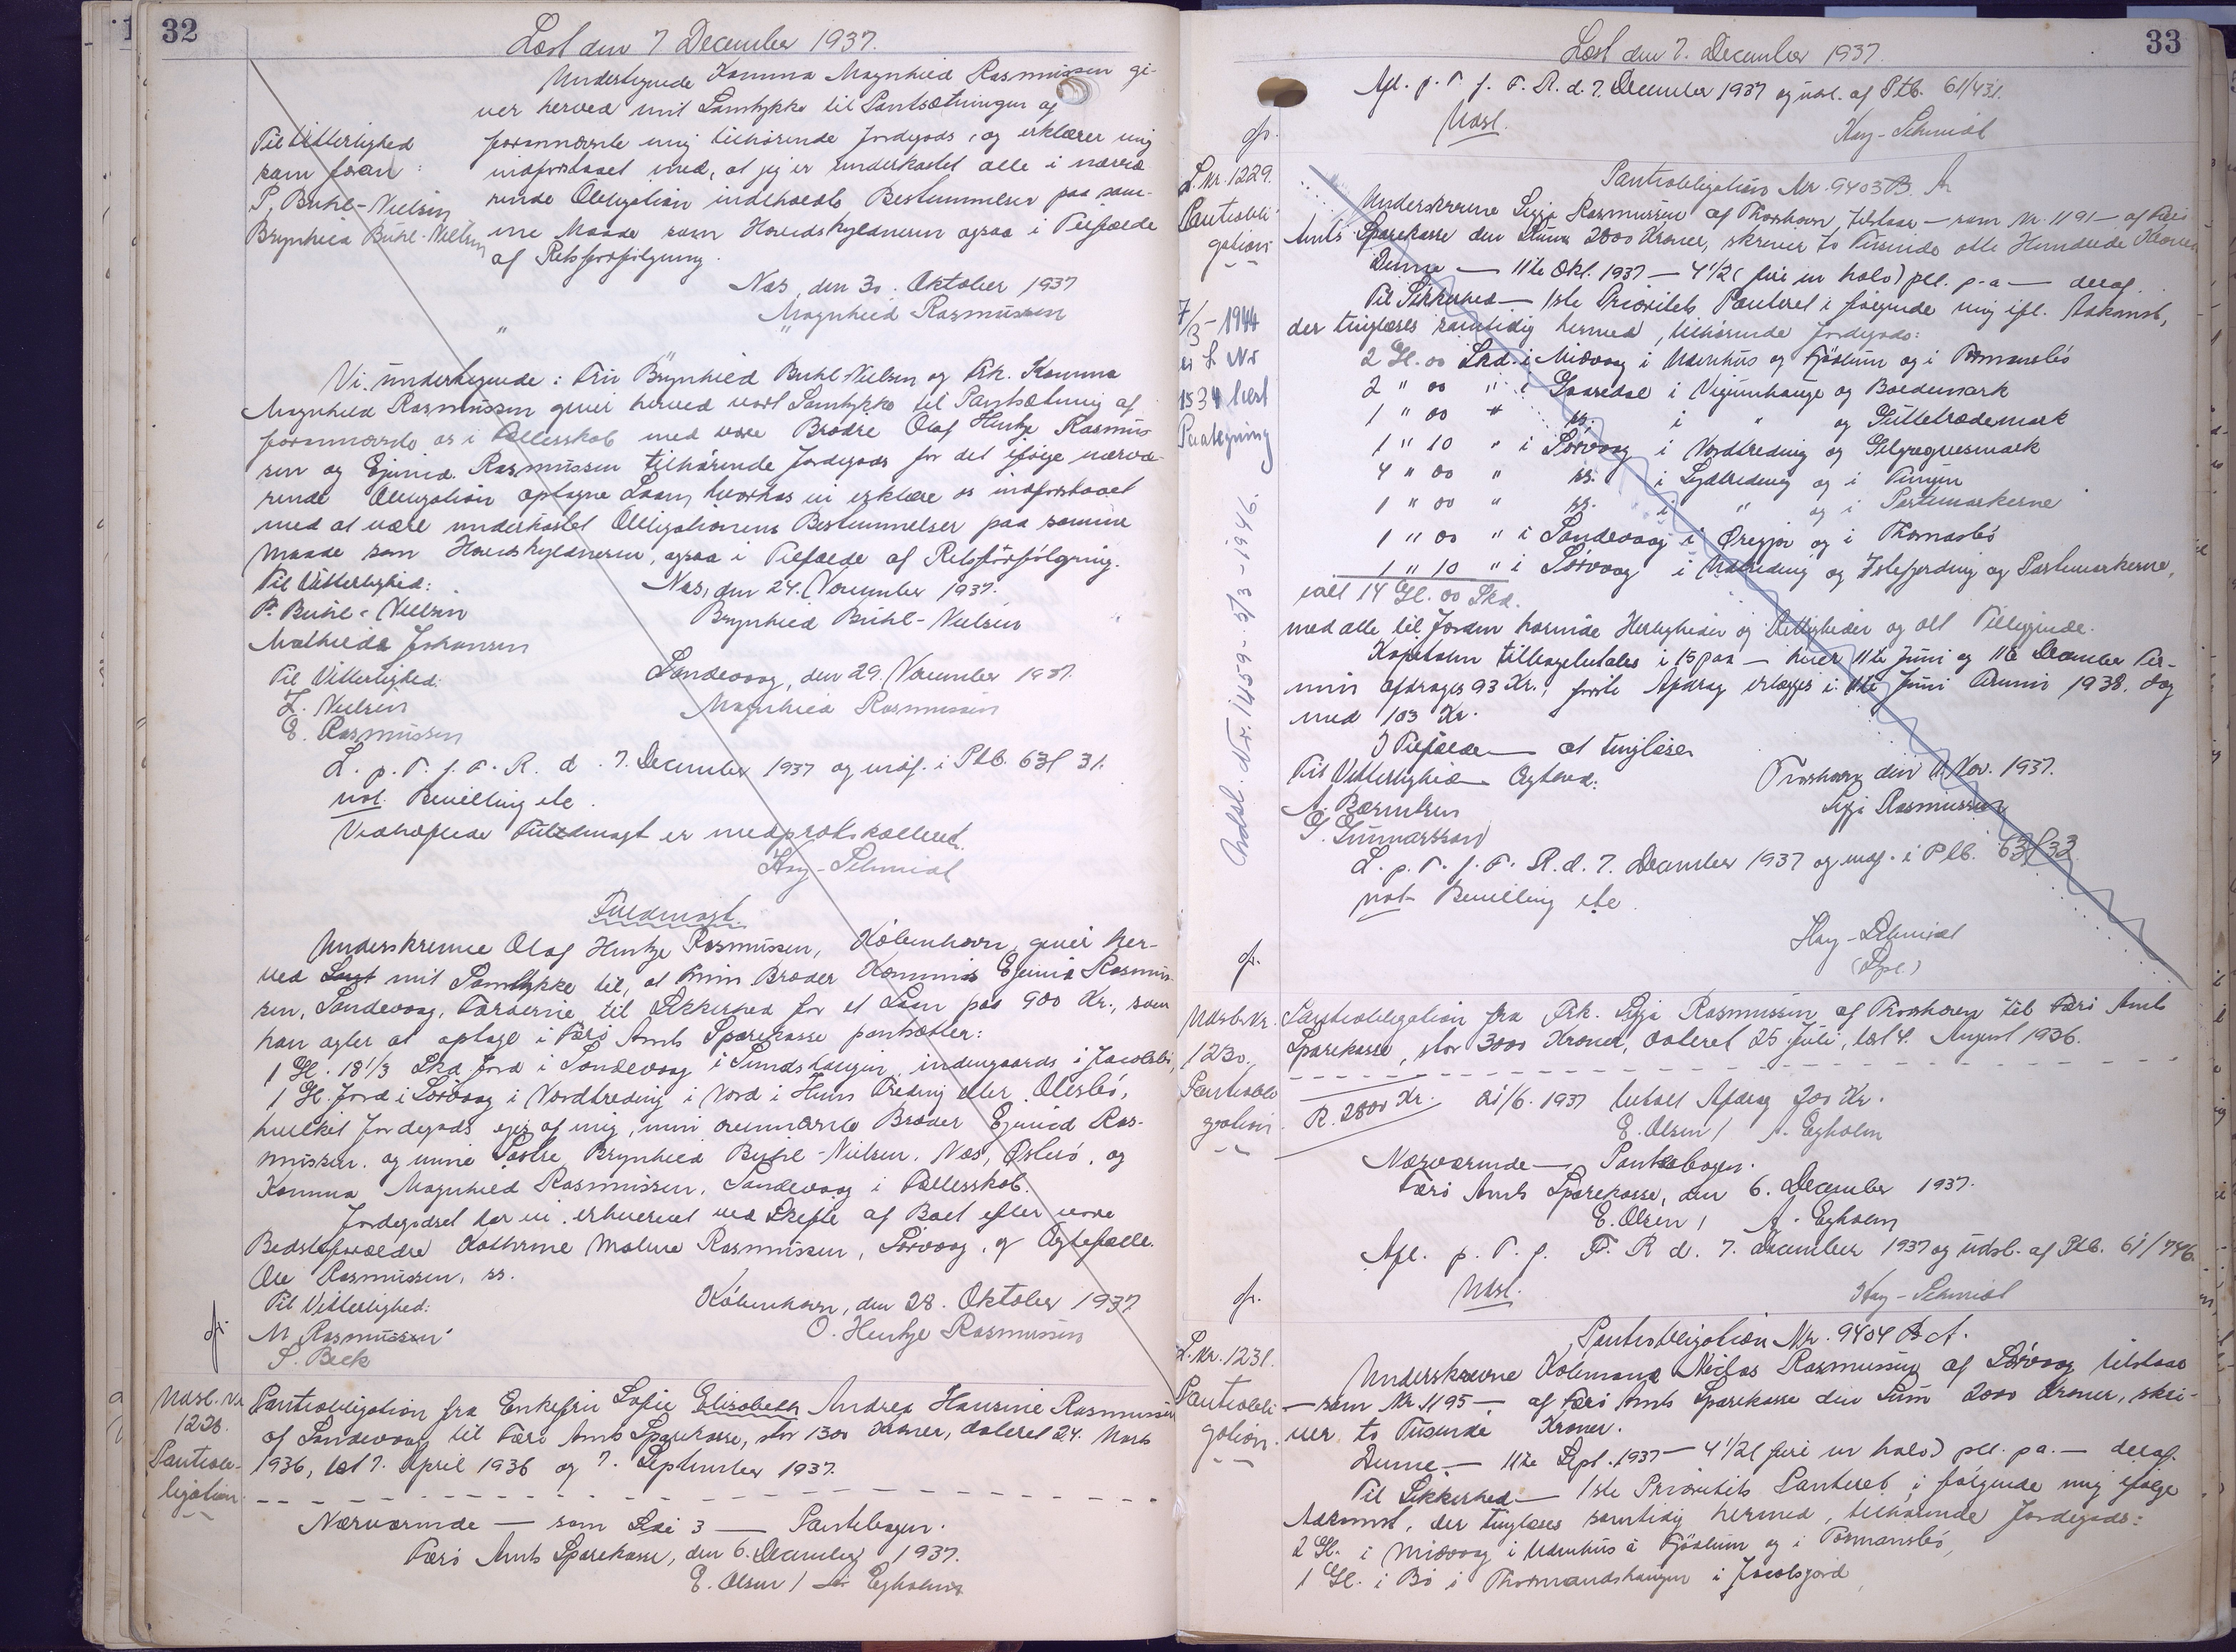 32
Læst den 7 December 1937.
Undertegnede Kamma Magnhild Rasmussen gi-
ver herved mit Samtykke til Pantsætningen af
forannævnte mig tilhørende Jordegods, og erklærer mig
indforstaaet med, at jeg er underkastet alle i nærvæ-
rende Obligation indeholdte Bestemmelser paa sam-
me Maade som Hovedskyldneren ogsaa i Tilfælde
af Retsforfølgning.
Til Vitterlighed
som foran:
P. Buhl-Nielsen
Brynhild Buhl-Nielsen
Næs, den 30. Oktober 1937
Magnhild Rasmussen
" "
Vi undertegnede: Fru Brynhild Buhl-Nielsen og Frk. Kamma
Magnhild Rasmussen giver herved vort Samtykke til Pantsætning af
forannævnte os i Fællesskab med vore Brødre Olaf Hentze Rasmus-
sen og Ejvind Rasmussen tilhørende Jordegods for det ifølge nærvæ-
rende Obligation optagne Laan, hvorhos vi erklære os indforstaaet
med at være underkastet Obligationens Bestemmelser paa samme
Maade som Hovedskyldneren, ogsaa i Tilfælde af Retsforfølgning.
Til Vitterlighed:
Næs, den 24. November 1937.
P. Buhl-Nielsen
Brynhild Buhl-Nielsen
Mathilda Johansen
Til Vitterlighed:
Sandevaag, den 29. November 1937.
Z. Nielsen
Magnhild Rasmussen
E. Rasmussen
L. p. T. f. F. R. d. 7. December 1937 og indf. i Ptb. 63f 31.
not. Bevilling etc.
Vedhæftede Fuldmagt er medprotokolleret.
Hay-Schmidt
Fuldmagt.
Underskrevne Olaf Hentze Rasmussen, København, giver her-
ved mit Samtykke til, at min Broder Kommis Ejvind Rasmus-
sen, Sandevaag, Færøerne til Sikkerhed for et Laan paa 900 Kr., som
han agter at optage i Færø Amts Sparekasse pantsætter:
1 Gl. 18 1/3 Skd Jord i Sandevaag i Sundshaugin, indengaards i Jacobsbø,
1 Gl. Jord i Sørvaag i Nordtreding i Nord i Hum Treding eller Olesbø,
hvilket Jordegods ejes af mig, min ovennævnte Broder Ejvind Ras-
mussen, og mine Søstre Brynhild Buhl-Nielsen, Næs, Østerø, og
Kamma Magnhild Rasmussen, Sandevaag i Fællesskab.
Jordegodset har vi erhvervet ved Skifte af Boet efter vore
Bedsteforældre Kathrine Malene Rasmussen, Sørvaag, og Ægtefælle
Ole Rasmussen, ss.
Til Vitterlighed:
København, den 28. Oktober 1937
M Rasmussen
O. Hentze Rasmussen
S. Beck
Udsl. Nr.
1228.
Pantob-
ligation
Pantobligation fra Enkefru Sofie Elisabeth Andrea Hansine Rasmussen
af Sandevaag til Færø Amts Sparekasse, stor 1300 Kroner, dateret 24. Marts
1936, læst 7. April 1936 og 7. September 1937.
Nærværende — som Side 3 — Pantebogen.
Færø Amts Sparekasse, den 6. December 1937.
E. Olsen / Egholm
33
Læst den 7. December 1937.
Afl. p. T. f. F. R. d. 7. December 1937 og udsl. af Ptb. 61/431.
Udsl.
Hay-Schmidt
L. Nr. 1229.
Pantobli-
gation
7/3-1944
er L Nr
1534 læst
Paategning
Udsl. Nr. 1459-5/3-1946.
Pantobligation Nr. 9403
Underskrevne Sigga Rasmussen af Thorshavn, tilstaar — som Nr. 1191 — af Færø
Amts Sparekasse den Sum 2800 Kroner, skriver to Tusinde otte Hundrede Kroner
Denne — 11te Okt. 1937 — 4 1/2 (fire en halv) pCt. p.a. — deraf.
Til Sikkerhed — 1ste Prioritets Panteret i følgende mig ifl. Adkomst,
der tinglæses samtidig hermed, tilhørende Jordegods:
2 Gl. 00 Skd. i Midvaag i Udenhus og Fjøslum og i Tormansbø
2 " 00 " i Gaasedal i Vigumhauge og Boldemark
1 " 00 " ss. i " og Gilletrædemark
1 " 10 " i Sørvaag i Nordtreding og
4 " 00 " ss. i Sydtreding og i Tungen
1 " 00 " ss. i " og i Partemarkerne
1 " 00 " i Sandevaag i Øregjor og i Thomasbø
1 " 10 " i Sørvaag i Udtreding og og Partemarkerne,
ialt 14 Gl. 00 Skd.
med alle til Jorden hørende Herligheder og Rettigheder og alt Tilliggende.
Kapitalen tilbagebetales i 15 paa — hver 11te Juni og 11te December Ter-
min afdrages 93 Kr., første Afdrag erlægges i 11te Juni Termin 1938, dog
med 103 Kr.
I Tilfælde — at tinglæse
Til Vitterlighed — Egholm:
Thorshavn den 11. Nov. 1937.
A. Berntsen
Sigga Rasmussen
G. Gunnarsson
L. p. T. f. F. R. d. 7. December 1937 og indf. i Ptb. 63f 32
not. Bevilling etc
Hay-Schmidt
Udsl. Nr.
1230.
Pantobli-
gation
Pantobligation fra Frk. Sigga Rasmussen af Thorshavn til Færø Amts
Sparekasse, stor 3000 Kroner, dateret 25 Juli, læst 4. August 1936.
R. 2800 Kr. 21/6. 1937 betalt Afdrag 200 Kr.
E. Olsen / A. Egholm
Nærværende — Pantebogen.
Færø Amts Sparekasse, den 6. December 1937.
E. Olsen / A. Egholm
Afl. p. T. f. F. R d. 7. December 1937 og udsl. af Ptb. 61/746.
Udsl.
Hay-Schmidt
L. Nr. 1231.
Pantobli-
gation.
Pantobligation Nr. 9404 B. A.
Underskrevne Niclas Rasmussen af Sørvaag tilstaar
— som Nr 1195 — af Færø Amts Sparekasse den Sum 2000 Kroner, skri-
ver to Tusinde Kroner.
Denne — 11te Sept. 1937 — 4 1/2 (fire en halv) pCt. p.a. — deraf.
Til Sikkerhed — 1ste Prioritets Panteret i følgende mig ifølge
Adkomst, der tinglæses samtidig hermed, tilhørende Jordegods:
2 Gl. i Midvaag i Udenhus á Fjøslum og i Tormansbø,
1 Gl. i Bø i Thormandshaugen i Jacobsgjord,